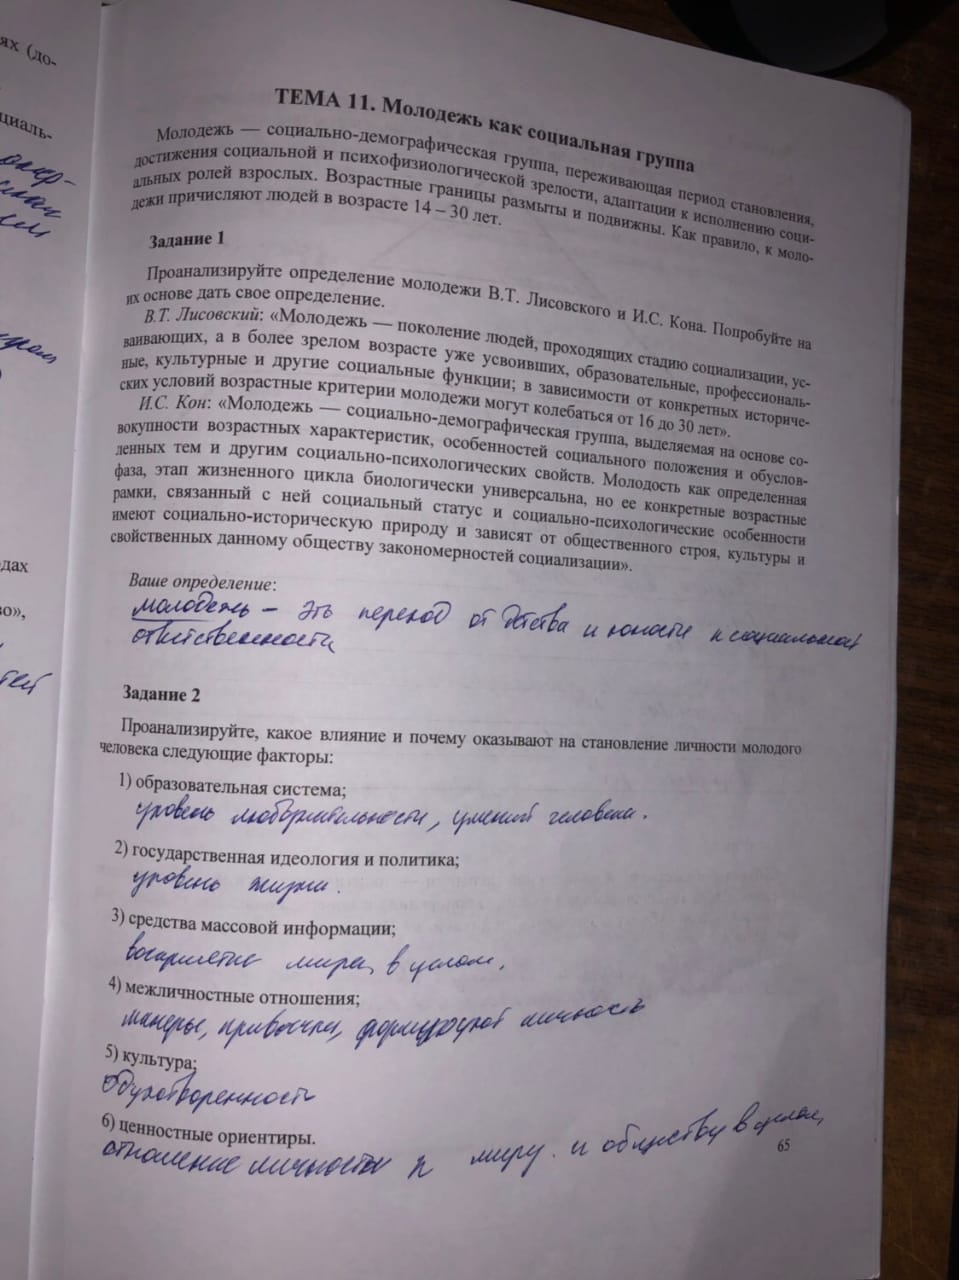 ях (до-
циаль-
дах
во»,
ТЕМА 11. Молодежь как социальная группа
Молодежь — социально-демографическая группа, переживающая период становления,
достижения социальной и психофизиологической зрелости, адаптации к исполнению соци-
альных ролей взрослых. Возрастные границы размыты и подвижны. Как правило, к моло-
дежи причисляют людей в возрасте 14 – 30 лет.
Задание 1
Проанализируйте определение молодежи В.Т. Лисовского и И.С. Кона. Попробуйте на
их основе дать свое определение.
В.Т. Лисовский: «Молодежь — поколение людей, проходящих стадию социализации, ус-
ваивающих, а в более зрелом возрасте уже усвоивших, образовательные, профессиональ-
ные, культурные и другие социальные функции; в зависимости от конкретных историче-
ских условий возрастные критерии молодежи могут колебаться от 16 до 30 лет».
И.С. Кон: «Молодежь — социально-демографическая группа, выделяемая на основе со-
вокупности возрастных характеристик, особенностей социального положения и обуслов-
ленных тем и другим социально-психологических свойств. Молодость как определенная
фаза, этап жизненного цикла биологически универсальна, но ее конкретные возрастные
рамки, связанный с ней социальный статус и социально-психологические особенности
имеют социально-историческую природу и зависят от общественного строя, культуры и
свойственных данному обществу закономерностей социализации».
Ваше определение:
молодежь – это переход от детства и юности к социальной
ответственности
Задание 2
Проанализируйте, какое влияние и почему оказывают на становление личности молодого
человека следующие факторы:
1) образовательная система;
уровень любознательности, умений человека.
2) государственная идеология и политика;
уровень жизни.
3) средства массовой информации;
восприятие мира, в целом.
4) межличностные отношения;
манеры, привычки, формируют личность
5) культура;
одухотворенность
6) ценностные ориентиры.
отношение личности к миру и обществу в целом,
65